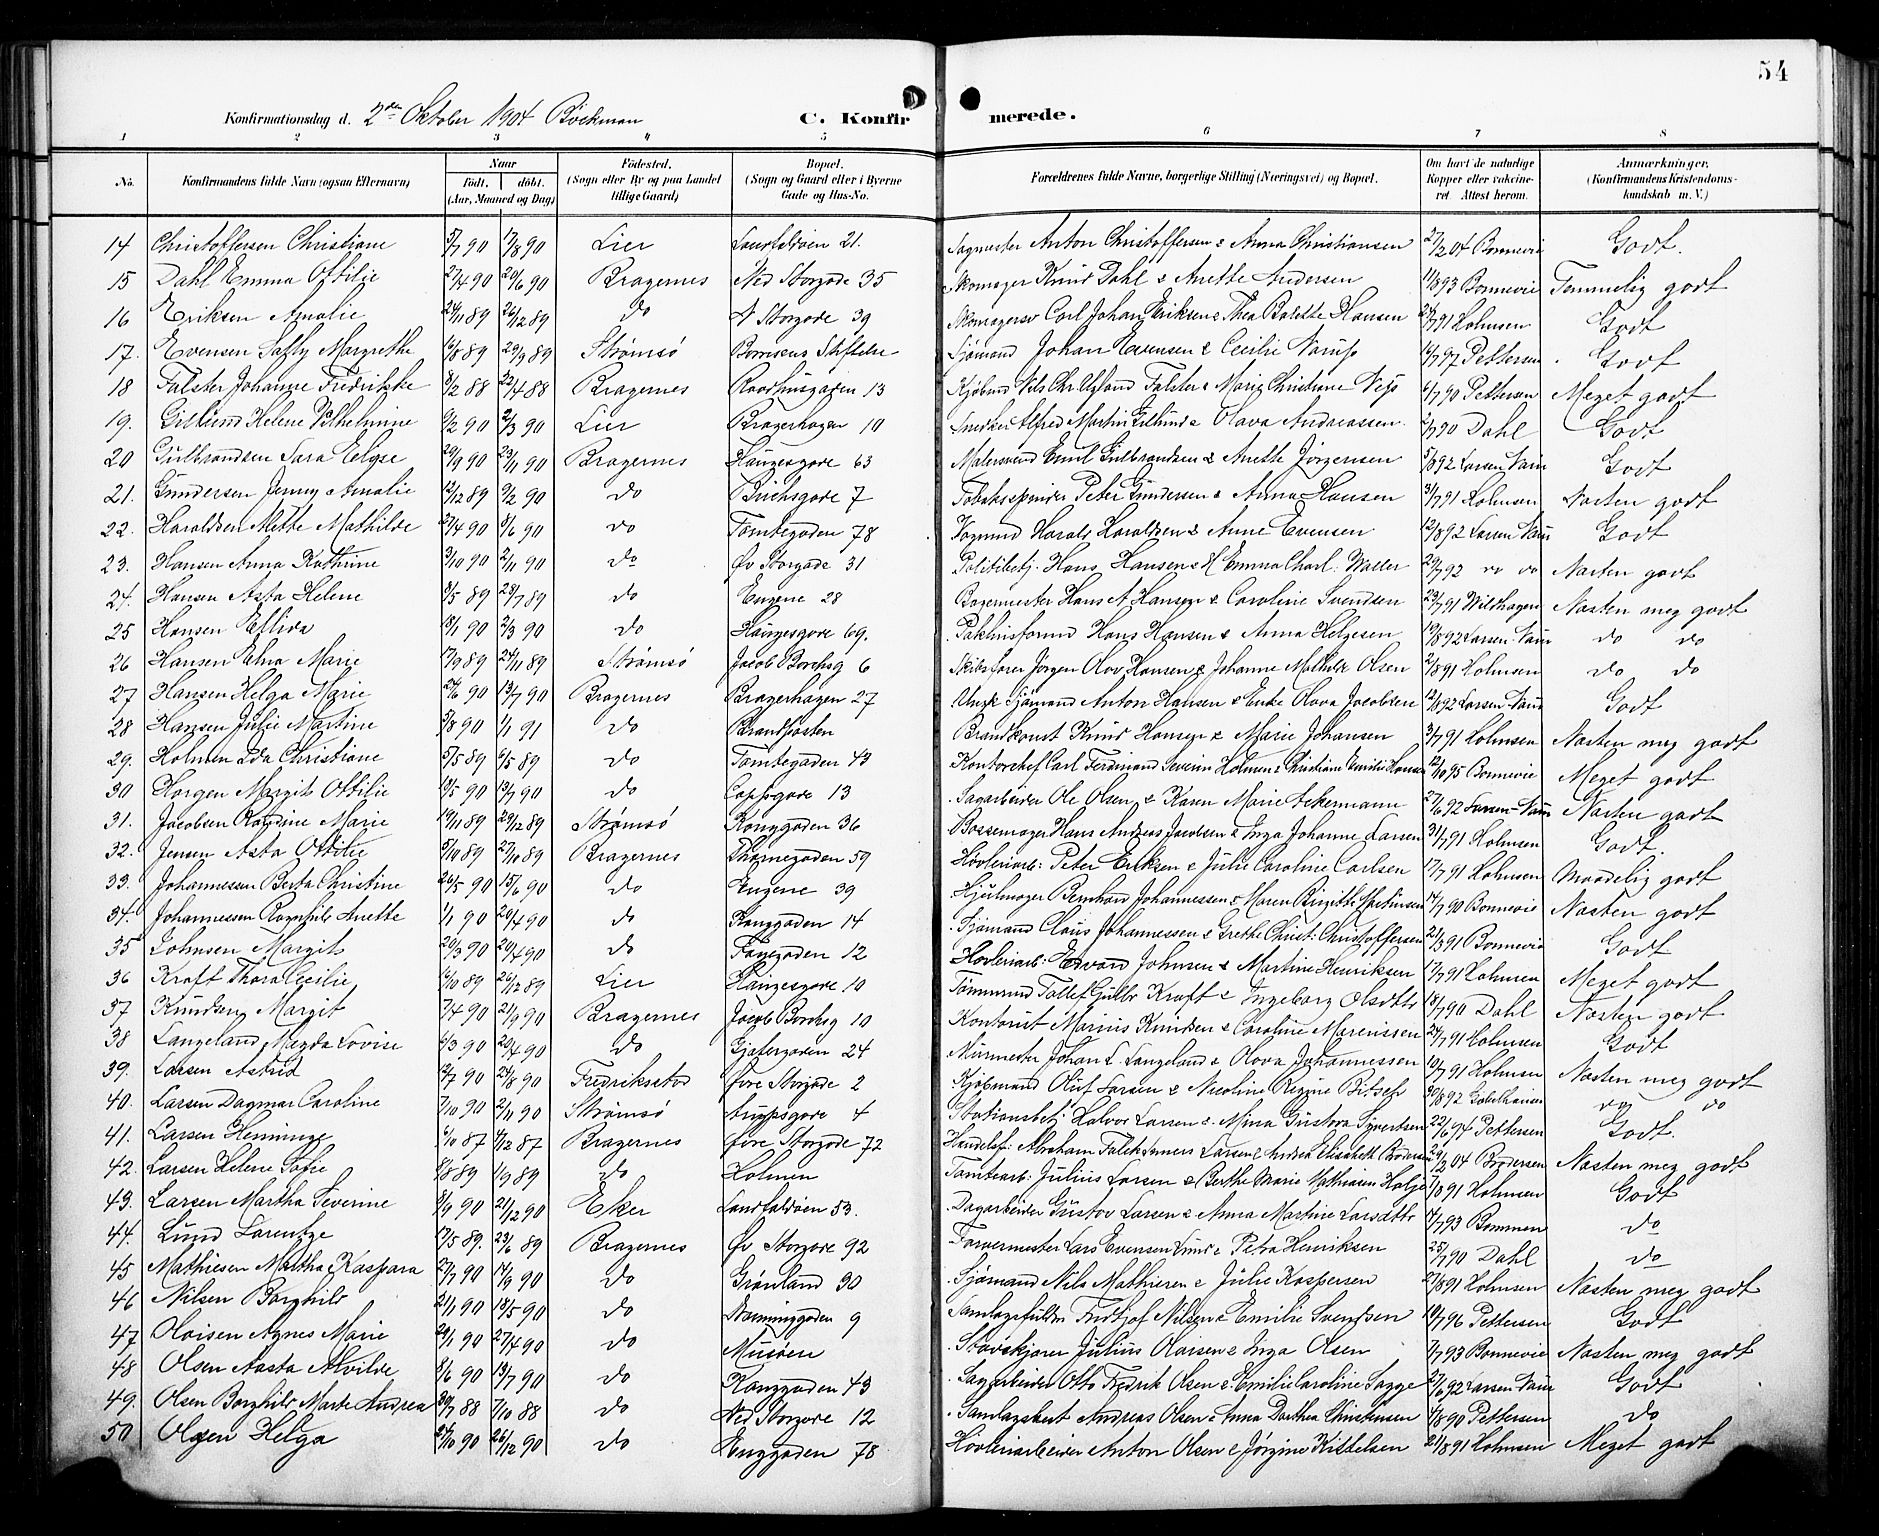 54
Konfirmationsdag d. 2den Oktober 1904 Böckman
C. Konfirmerede.
1 2 3 4 5 6 7 8
No. Konfirmandens fulde Navn (ogsaa Efternavn) Naar född. döbt. (Aar, Maaned og Dag) Födested. (Sogn eller By og paa Landet tillige Gaard) Bopæl. (Sogn og Gaard eller i Byerne Gade og Hus-No. Forældrenes fulde Navne, borgerlige Stilling (Næringsvei) og Bopæl. Om havt de naturlige Kopper eller vaccineret. Attest herom. Anmærkninger. (Konfirmandens Kristendomskundskab m. V.)
14 Christoffersen Christiane 5/7 90 17/8 90 Lier Landfaldöen 21. Sagmester Anton Christoffersen & Anna Christiansen 27/2 04 Bonnevie Godt.
15 Dahl Emma Ottilie 27/4 90 20/6 90 Bragernes Ned Storgade 35 Skomager Knud Dahl & Anette Andersen 11/8 93 Bonnevie Temmelig godt
16 Eriksen Amalie 24/11 89 26/12 89 do N Storgade 39 Skomagersv Carl Johan Eriksen & Thea Bolette Hansen 91 Holmsen Godt
17. Evensen Margrethe 16/8 89 29/9 89 Strømsö Stiftelse Sjömand Johan Evensen & Cecilie 16/7 97 Pettersen Godt
18 Falster Johanne Fredrikke 8/2 88 22/4 88 Bragernes Raadhusgaden 13 Kjöbmd Nils Chr Falster & Marie Christiane 6/7 90 Pettersen Meget godt
19. Gillund Helene Vilhelmine 9/2 90 2/3 90 Lier Bragerhagen 10 Snedker Alfred Martin Gillund & Olava Andreassen 2/7 90 Dahl Godt
20 Gulbrandsen Sara Elise 29/9 90 23/11 90 Bragernes Haugesgade 63 Malersvend Emil Gulbrandsen & Anette Jörgensen 5/8 92 Larsen Godt
21. Gundersen Jenny Amalie 12/12 89 9/2 90 do 7 Tobaksspinder Peter Gundersen & Anna Hansen 31/7 91 Holmsen Næsten godt
22. Haraldsen Mette Mathilde 27/4 90 8/6 90 do Tomtegaden 78 Vognmd Harald Haraldsen & Anne Evensen 12/8 92 Larsen Godt
23. Hansen Anna Kathrine 3/10 90 2/11 90 do Øv Storgade 31 Politibetj. Hans Hansen & Emma Charl. 29/7 92 do do Næsten godt
24. Hansen Asta Helene 3/5 89 28/7 89 do Engene 28 Bagermester Hans A Hansen & Caroline Svendsen 29/7 91 Wildhagen Næsten meg godt
25 Hansen Ellida 18/1 90 2/3 90 do Haugesgade 69. Pakhusformd Hans Hansen & Anna Helgesen 19/8 92 Larsen do do
26 Hansen Edna Marie 17/9 89 24/11 89 Strømsö Jacob Borchsg 6 Skibsförer Jörgen Olav Hansen & Johanne Mathilde Olsen 2/8 91 Holmsen do do
27 Hansen Helga Marie 24/6 90 13/7 90 Bragernes Bragerhagen 27 Ungk Sjömand Anton Hansen & Enke Olava Jacobsen 12/8 92 Larsen Godt
28 Hansen Julie Martine 5/8 90 1/1 91 do Brandposten Brandkonst Knud Hansen & Marie Johansen 3/7 91 Holmsen Næsten meg godt
29. Holmen Ida Christiane 5/5 89 6/5 89 do Tomtegaden 43 Kontorchef Carl Ferdinand Severin Holmen & Christiane Emilie Hansen 12/10 95 Bonnevie Meget godt
30 Horgen Margit Ottilie 13/5 90 13/7 90 do Cappsgade 13 Sagarbeider Ole Olsen & Karen Marie Ackermann 27/6 92 Larsen Næsten godt
31. Jacobsen Marie 19/11 89 29/12 89 Strømsö Konggaden 36 Bossemager Hans Andreas Jacobsen & Inga Johanne Larsen 31/7 91 Holmsen Godt.
32. Jensen Asta Ottilie 5/10 89 27/10 89 Bragernes 59 Høvleriarb: Peter Eriksen & Julie Caroline Carlsen 17/7 91 Holmsen Maadelig godt
33. Johannessen Berta Christine 26/5 90 15/6 90 do Engene 39 Hjulmager Bernhard Johannessen & Maren Birgitte Martinsen 14/7 90 Bonnevie Næsten godt
34. Johannessen Ragnhild Anette 1/1 90 20/4 90 do Konggaden 14 Sjömand Claus Johannessen & Grethe Christ: Christoffersen 21/3 91 Bonnevie Godt
35 Johnsen Margit 20/3 90 20/4 90 do 12 Høvleriarb: Edvard Johnsen & Martine Henriksen 17/7 91 Holmsen Meget godt
36 Kraft Thora Cecilie 16/10 89 26/12 89 Lier Haugesgade 10 Tömmermd Tollef Gulbr Kraft & Ingeborg Olsdtr 18/7 90 Dahl Næsten godt
37 Knudsen Margit 7/4 90 21/9 90 Bragernes Jacob Borchsg 10 Kontorist Marius Knudsen & Caroline 24/7 91 Holmsen Godt
38 Langeland Magda Lovise 6/3 90 20/4 90 do Gjetergaden 24 Murmester Johan L. Langeland & Olava Johannessen 10/7 91 Holmsen Næsten meg godt
39. Larsen Astrid 12/7 90 24/8 90 Fredriksstad Övre Storgade 2 Kjöbmand Oluf Larsen & Nicoline Regine 30/8 92 do do
40. Larsen Dagmar Caroline 7/10 90 2/11 90 Strømsö 4 Stationsbetj Halvor Larsen & Mina Gustava Syvertsen 22/6 94 Pettersen Godt.
41. Larsen Henninge 6/10 87 4/12 87 Bragernes Övre Storgade 72 Handelsf: Abraham Falck Larsen & Andrea Elisabeth Brodersen 29/2 04 Brodersen Næsten meg godt
42. Larsen Helene Sofie 8/8 89 1/9 89 do Holmen Tomtearb: Julius Larsen & Berthe Marie Mathiasen 7/8 91 Holmsen Godt
43. Larsen Martha Severine 8/9 90 21/12 90 Eker Landfaldöen 53. Dagarbeider Gustav Larsen & Anna Martine Larsdtr 14/7 93 Bommen do
44. Lund Larentze 17/5 89. 23/6 89 Bragernes Øv Storgade 92 Farvermester Lars Evensen Lund & Petra Henriksen 25/7 90 Dahl do
45 Mathiesen Martha Kaspara 27/7 90 14/9 90 do Grønland 30 Sjömand Nils Mathiesen & Julie Kaspersen 21/8 91 Holmsen Næsten meg godt
46 Nilsen Borghild 21/1 90 18/5 90 do 9 Fridtjof Nilsen & Emilie Svendsen 10/7 96 Pettersen Godt
47 Olaisen Agnes Marie 29/1 90 27/4 90 do Musöen Julius Olaisen & Inga Olsen 7/7 93 Bonnevie Næsten meg godt
48 Olsen Aasta Alvilde 8/6 90 13/7 90 do Konggaden 43 Sagarbeider Otto Fredrik Olsen & Emilie Caroline Sagge 27/6 92 Larsen Godt
49. Olsen Borghild Marte Andrea 30/7 88 7/10 88 do Ned Storgade 12 Samlagsbest Andreas Olsen & Anna Dorthea Christensen 4/8 90 Pettersen do
50 Olsen Helga 24/10 90 26/12 90 do 78 Høvleriarbeider Anton Olsen & Jørgine Kittelsen 21/8 91 Holmsen Meget godt